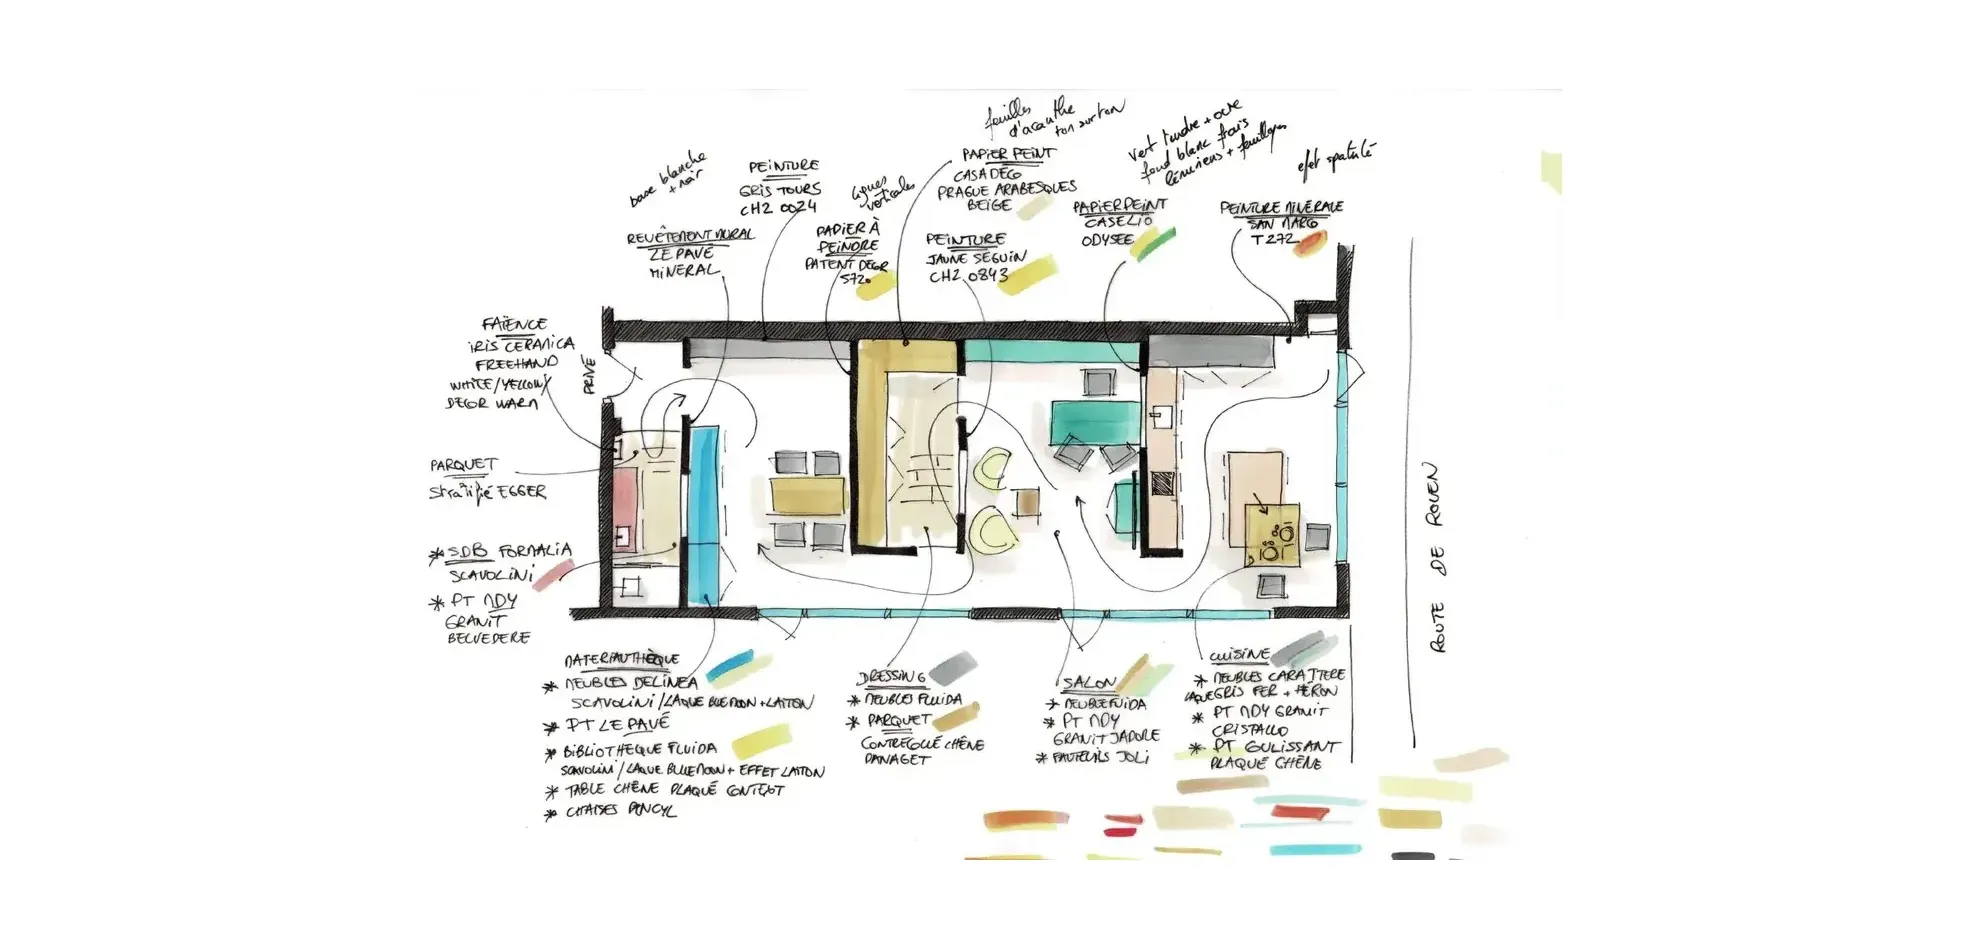 base blanche
+ noir
PEINTURE
GRIS TOURS
CH2 0024
REVÊTEMENT MURAL
LE PAVÉ
MINÉRAL
lignes
verticales
PAPIER À
PEINDRE
PATENT DECOR
572
feuilles
d'acanthe
ton sur ton
PAPIER PEINT
CASADECO
PRAGUE ARABESQUES
BEIGE
PEINTURE
JAUNE SEGUIN
CH2 0843
vert tendre + ocre
fond blanc frais
lémuriens + feuillages
PAPIER PEINT
CASELIO
ODYSEE
effet spatulé
PEINTURE MINÉRALE
SAN MARCO
T 272
FAÏENCE
IRIS CERAMICA
FREEHAND
WHITE/YELLOW/
DECOR WARM
PRIVÉ
PARQUET
Stratifié EGGER
* SDB FORMALIA
SCAVOLINI
* PT MDY
GRANIT
BELVEDERE
ROUTE DE ROUEN
MATERIAUTHÈQUE
* MEUBLES DELINEA
SCAVOLINI/LAQUE BLUE MOON + LAITON
* PT LE PAVÉ
* BIBLIOTHEQUE FLUIDA
SCAVOLINI/LAQUE BLUE MOON + EFFET LAITON
* TABLE CHÊNE PLAQUÉ
* CHAISES
DRESSING
* MEUBLES FLUIDA
* PARQUET
CONTRECOLLÉ CHÊNE
PANAGET
SALON
* MEUBLE FLUIDA
* PT MDY
GRANIT JADORE
* FAUTEUILS JOLI
CUISINE
* MEUBLES CARATTERE
LAQUE GRIS FER + HÉRON
* PT MDY GRANIT
CRISTALLO
* PT COULISSANT
PLAQUÉ CHÊNE